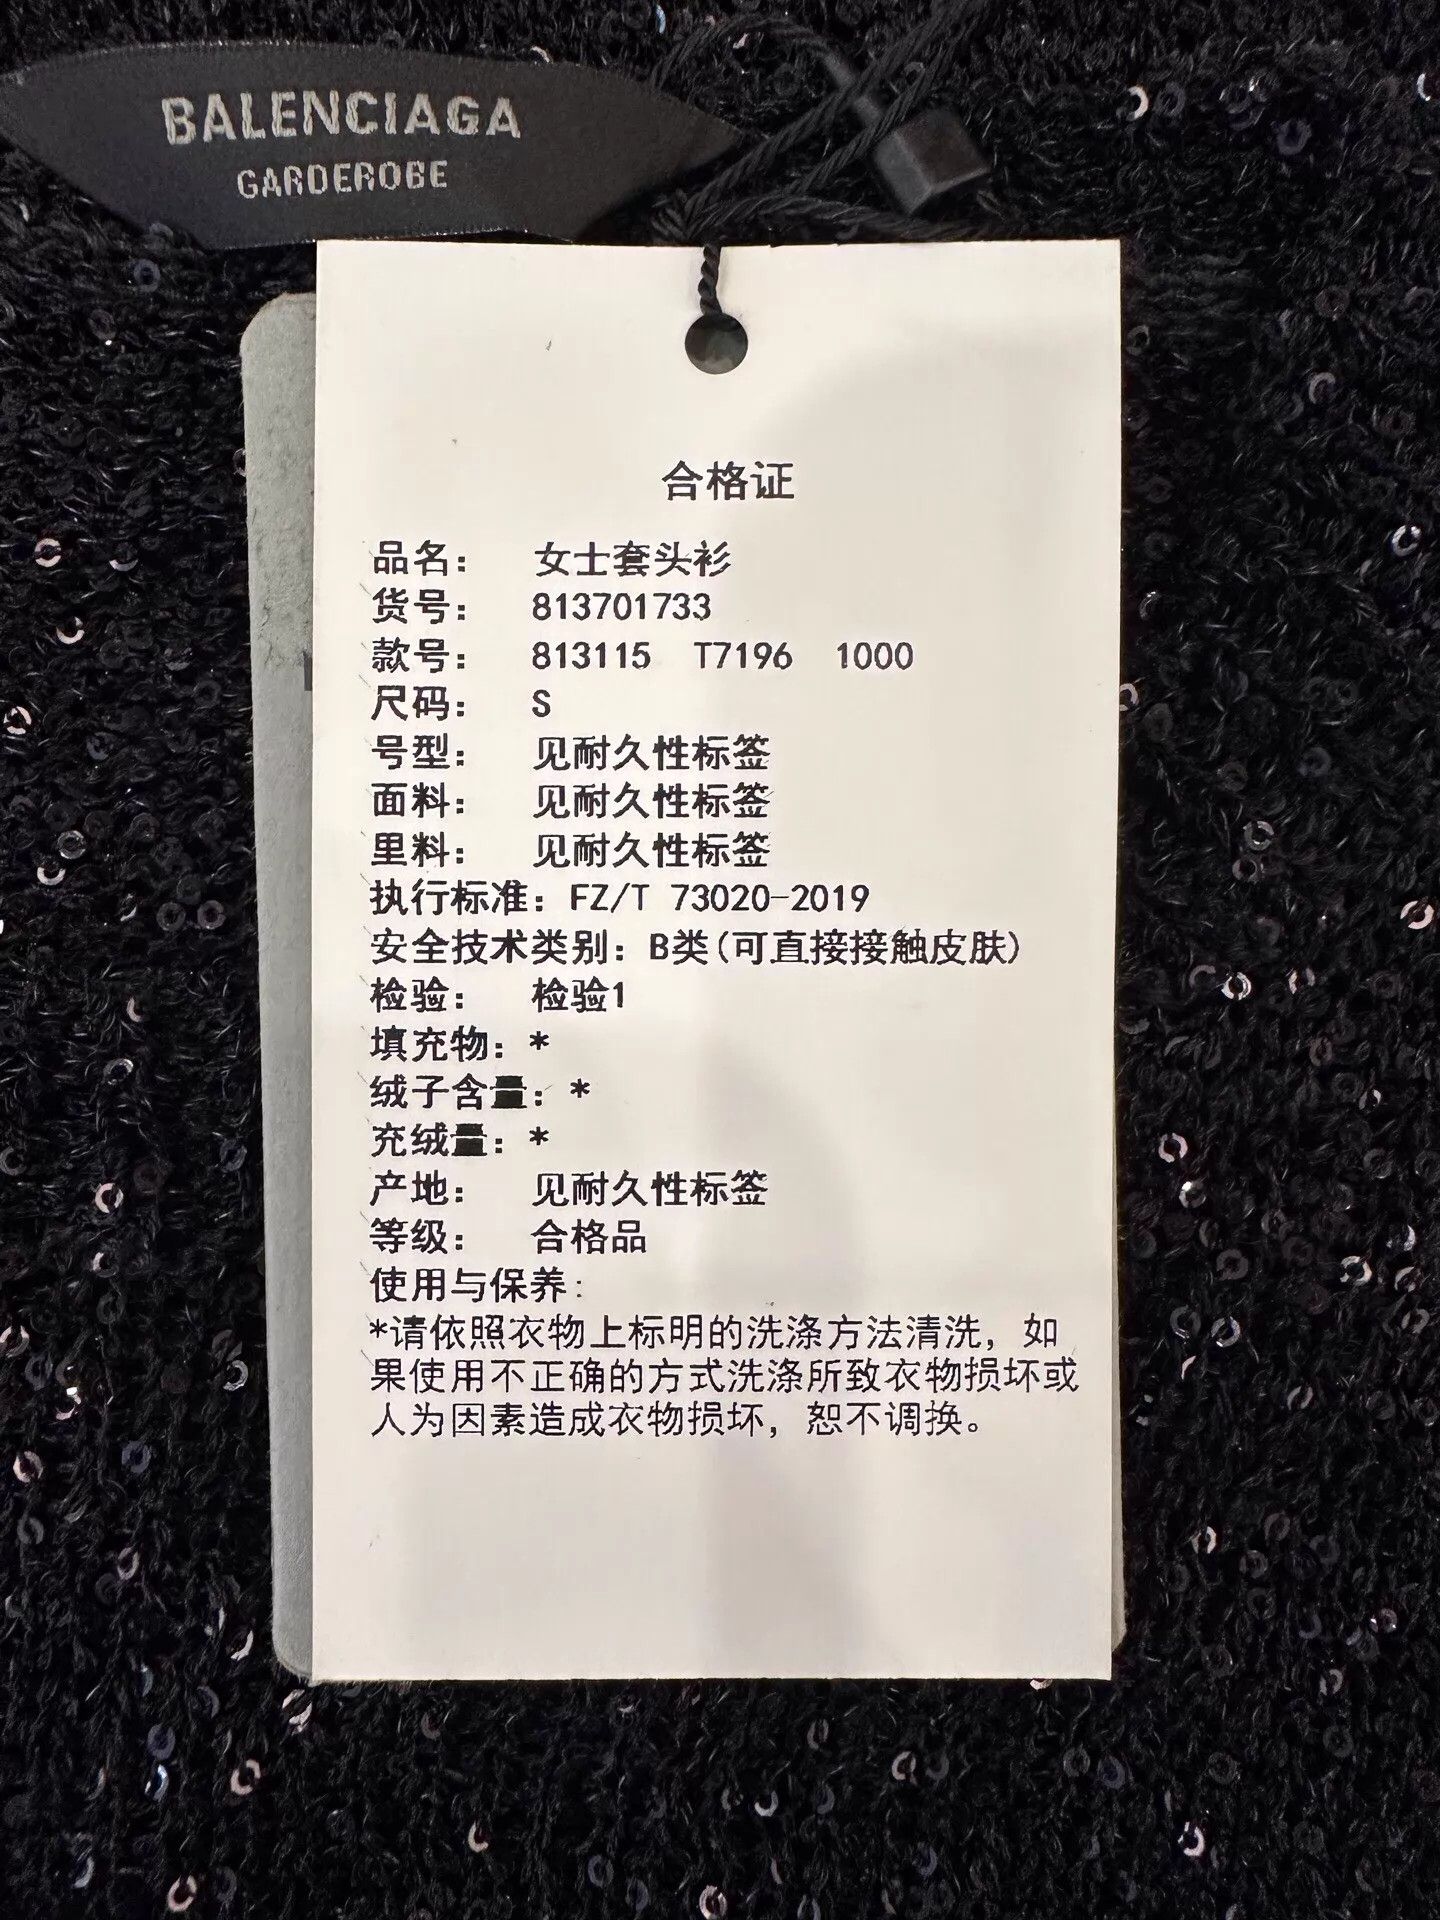 BALENCIAGA
GARDEROBE
合格证
品名： 女士套头衫
货号： 813701733
款号： 813115 T7196 1000
尺码： S
号型： 见耐久性标签
面料： 见耐久性标签
里料： 见耐久性标签
执行标准：FZ/T 73020-2019
安全技术类别：B类(可直接接触皮肤)
检验： 检验1
填充物：*
绒子含量：*
充绒量：*
产地： 见耐久性标签
等级： 合格品
使用与保养:
*请依照衣物上标明的洗涤方法清洗，如
果使用不正确的方式洗涤所致衣物损坏或
人为因素造成衣物损坏，恕不调换。